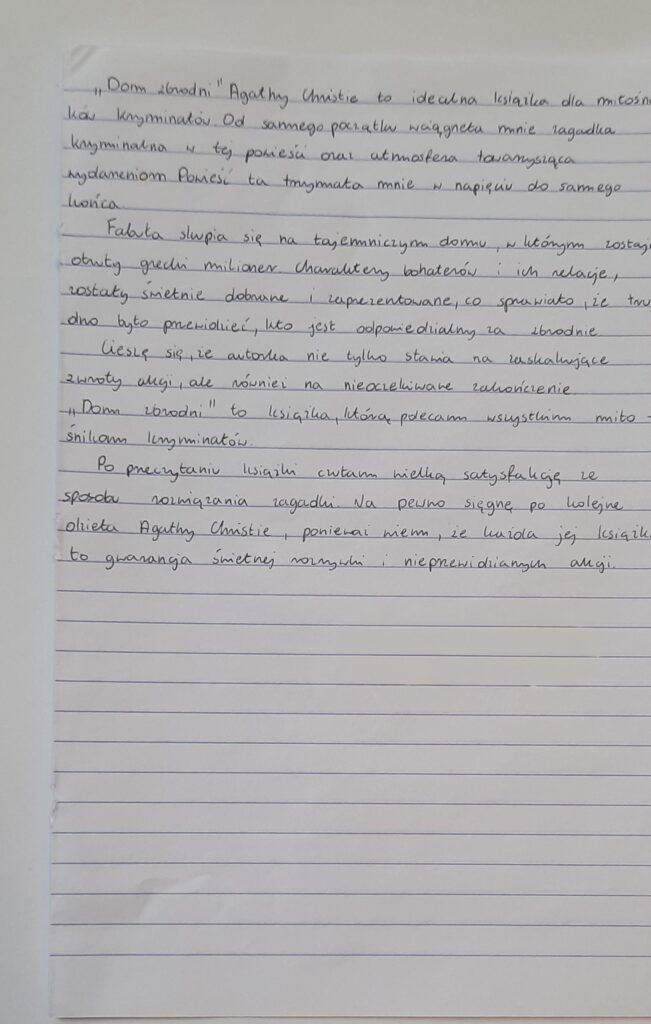 „Dom zbrodni" Agathy Christie to idealna książka dla miłośni
ków kryminałów. Od samego początku wciągnęła mnie zagadka
kryminalna w tej powieści oraz atmosfera towarzysząca
wydarzeniom. Powieść ta trzymała mnie w napięciu do samego
końca.
Fabuła skupia się na tajemniczym domu, w którym zostaje
otruty grecki milioner. Charaktery bohaterów i ich relacje,
zostały świetnie dobrane i zaprezentowane, co sprawiało, że tru
dno było przewidzieć, kto jest odpowiedzialny za zbrodnie.
Cieszę się, że autorka nie tylko stawia na zaskakujące
zwroty akcji, ale również na nieoczekiwane zakończenie.
„Dom zbrodni" to książka, którą polecam wszystkim miło-
śnikom kryminałów.
Po przeczytaniu książki czułam wielką satysfakcję ze
sposobu rozwiązania zagadki. Na pewno sięgnę po kolejne
dzieła Agathy Christie, ponieważ wiem, że każda jej książka
to gwarancja świetnej rozrywki i nieprzewidzianych akcji.